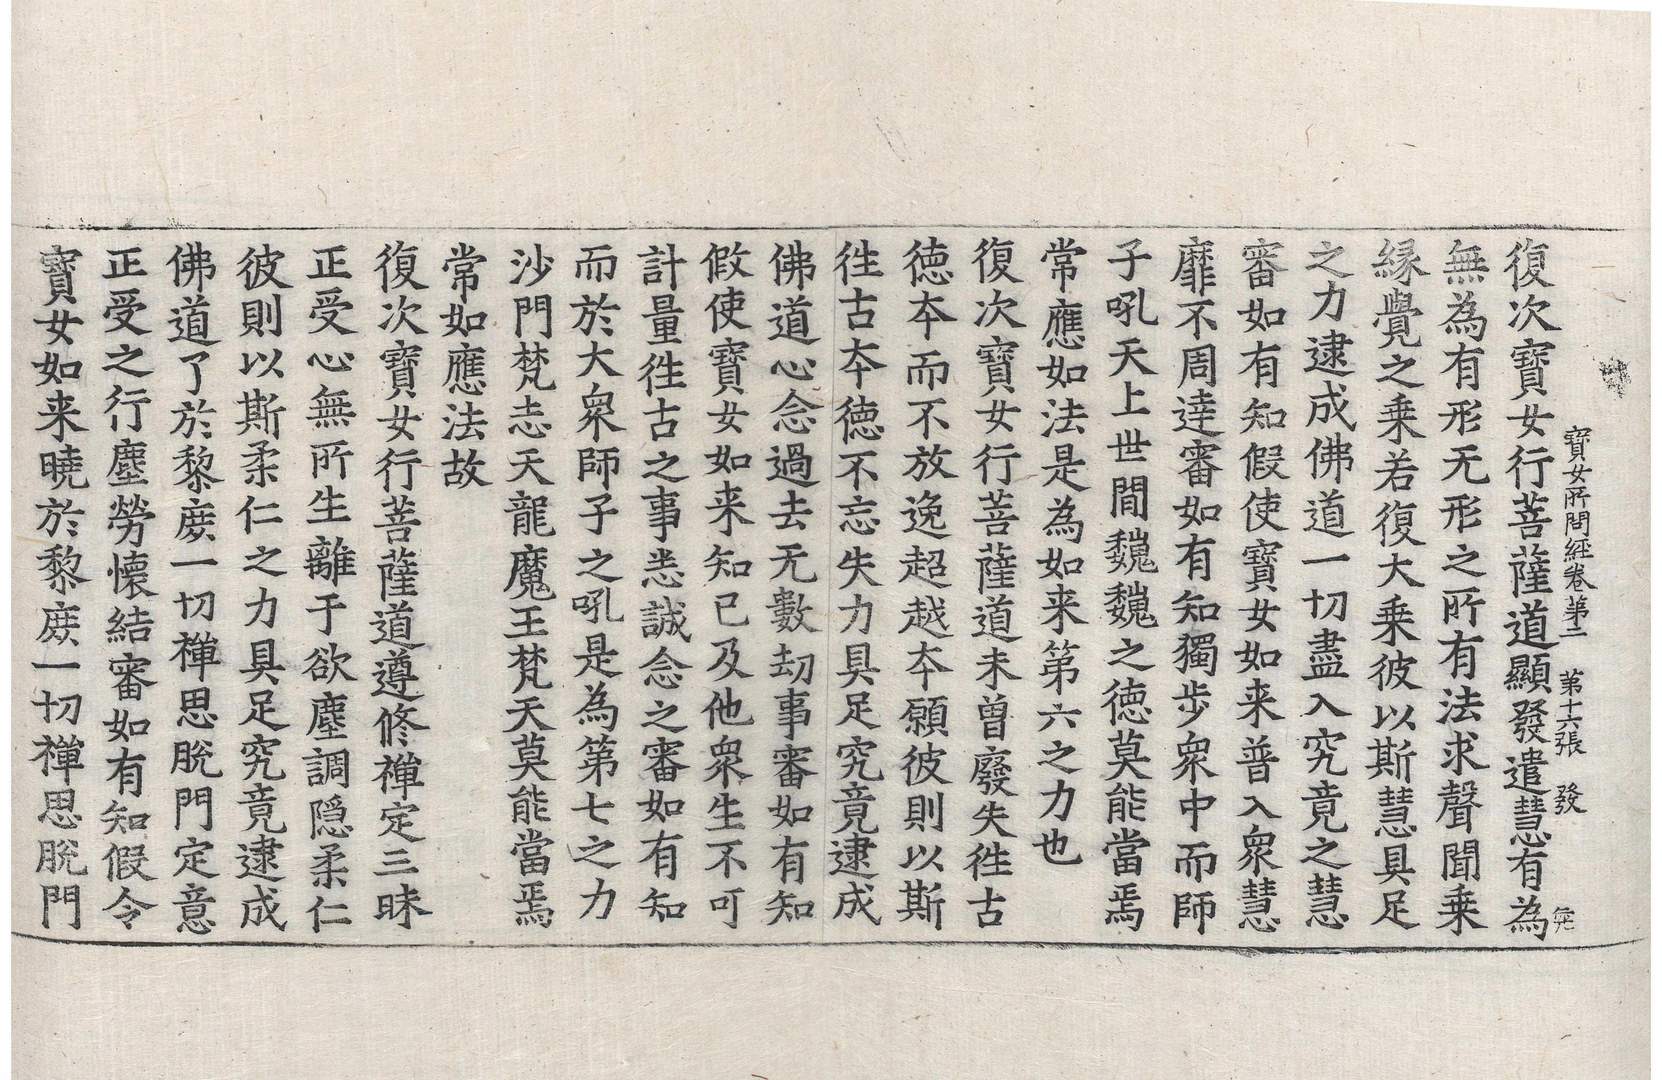 寶女所問經卷第二　第十六張　發
復次寶女行菩薩道顯發遣慧有為
無為有形无形之所有法求聲聞乗
縁覺之乗若復大乗彼以斯慧具足
之力逮成佛道一切盡入究竟之慧
審如有知假使寶女如来普入衆慧
靡不周逹審如有知獨步衆中而師
子吼天上世間巍巍之徳莫能當焉
常應如法是為如来第六之力也
復次寶女行菩薩道未曾廢失徃古
徳夲而不放逸超越夲願彼則以斯
徃古夲徳不忘失力具足究竟逮成
佛道心念過去无數劫事審如有知
假使寶女如来知已及他衆生不可
計量徃古之事悉誠念之審如有知
而於大衆師子之吼是為第七之力
沙門梵志天龍魔王梵天莫能當焉
常如應法故
復次寶女行菩薩道遵修禪定三昧
正受心無所生離于欲塵調隠柔仁
彼則以斯柔仁之力具足究竟逮成
佛道了於黎庻一切禪思脫門定意
正受之行塵勞懷結審如有知假令
寶女如来曉於黎庻一切禪思脫門